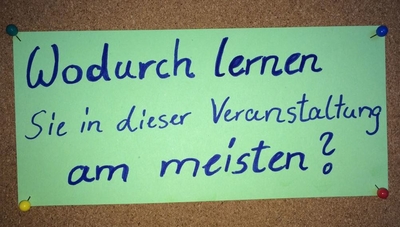 Wodurch lernen
Sie in dieser Veranstaltung
am meisten?